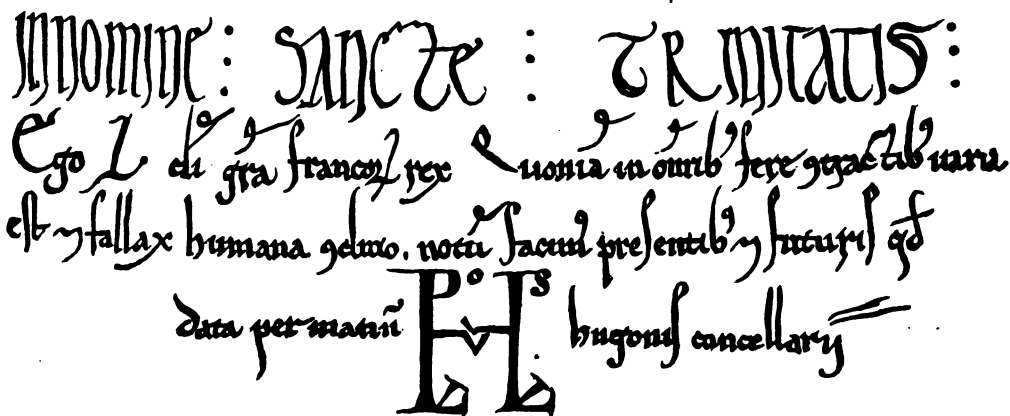 IN NOMINE : SANCTE : TRINITATIS :
Ego L. di gra francoꝝ rex Quoniā in om̄ib' fere ꝯtractib' uaria
est ⁊ fallax humana ꝯditio. notū facim' presentib' ⁊ futuris qd
data per manū hugonis concellarij